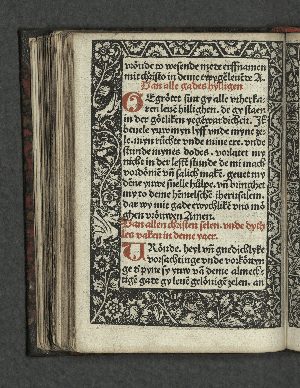 vröude to wesende mere entfangen
mit christo in deme ewygē leuēde A.
Van alle gades hylligen
GEgrötet sint gy alle vtherka-
ren leuē hillighen. de gy staen
in der götliken yegēwardicheit. Ik
beuele yuw myn lyff vnde myne ze-
le. myn rüchte vnde mine ere. vnde
stunde mynes dodes. vorlatet my
nicht in der lesten stunde de mi mach
vordömē vn̄ salich makē. geuet my
dēne yuwe snelle hülpe. vn̄ bringhet
my to deme hēmelschē iherusalem.
dar wy mit gade ewychlikē vns mö
ghen vröuwen Amen.
Van allen christen selen. vnde dyth
les vaken in deme iaer.
VRöude. heyl vn̄ gnedichlyke
vorsachtinge vnde vorköwyn
ge dyner sy yuw vā deme almech-
tigē gade gy leuē gelöuigē zelen. an